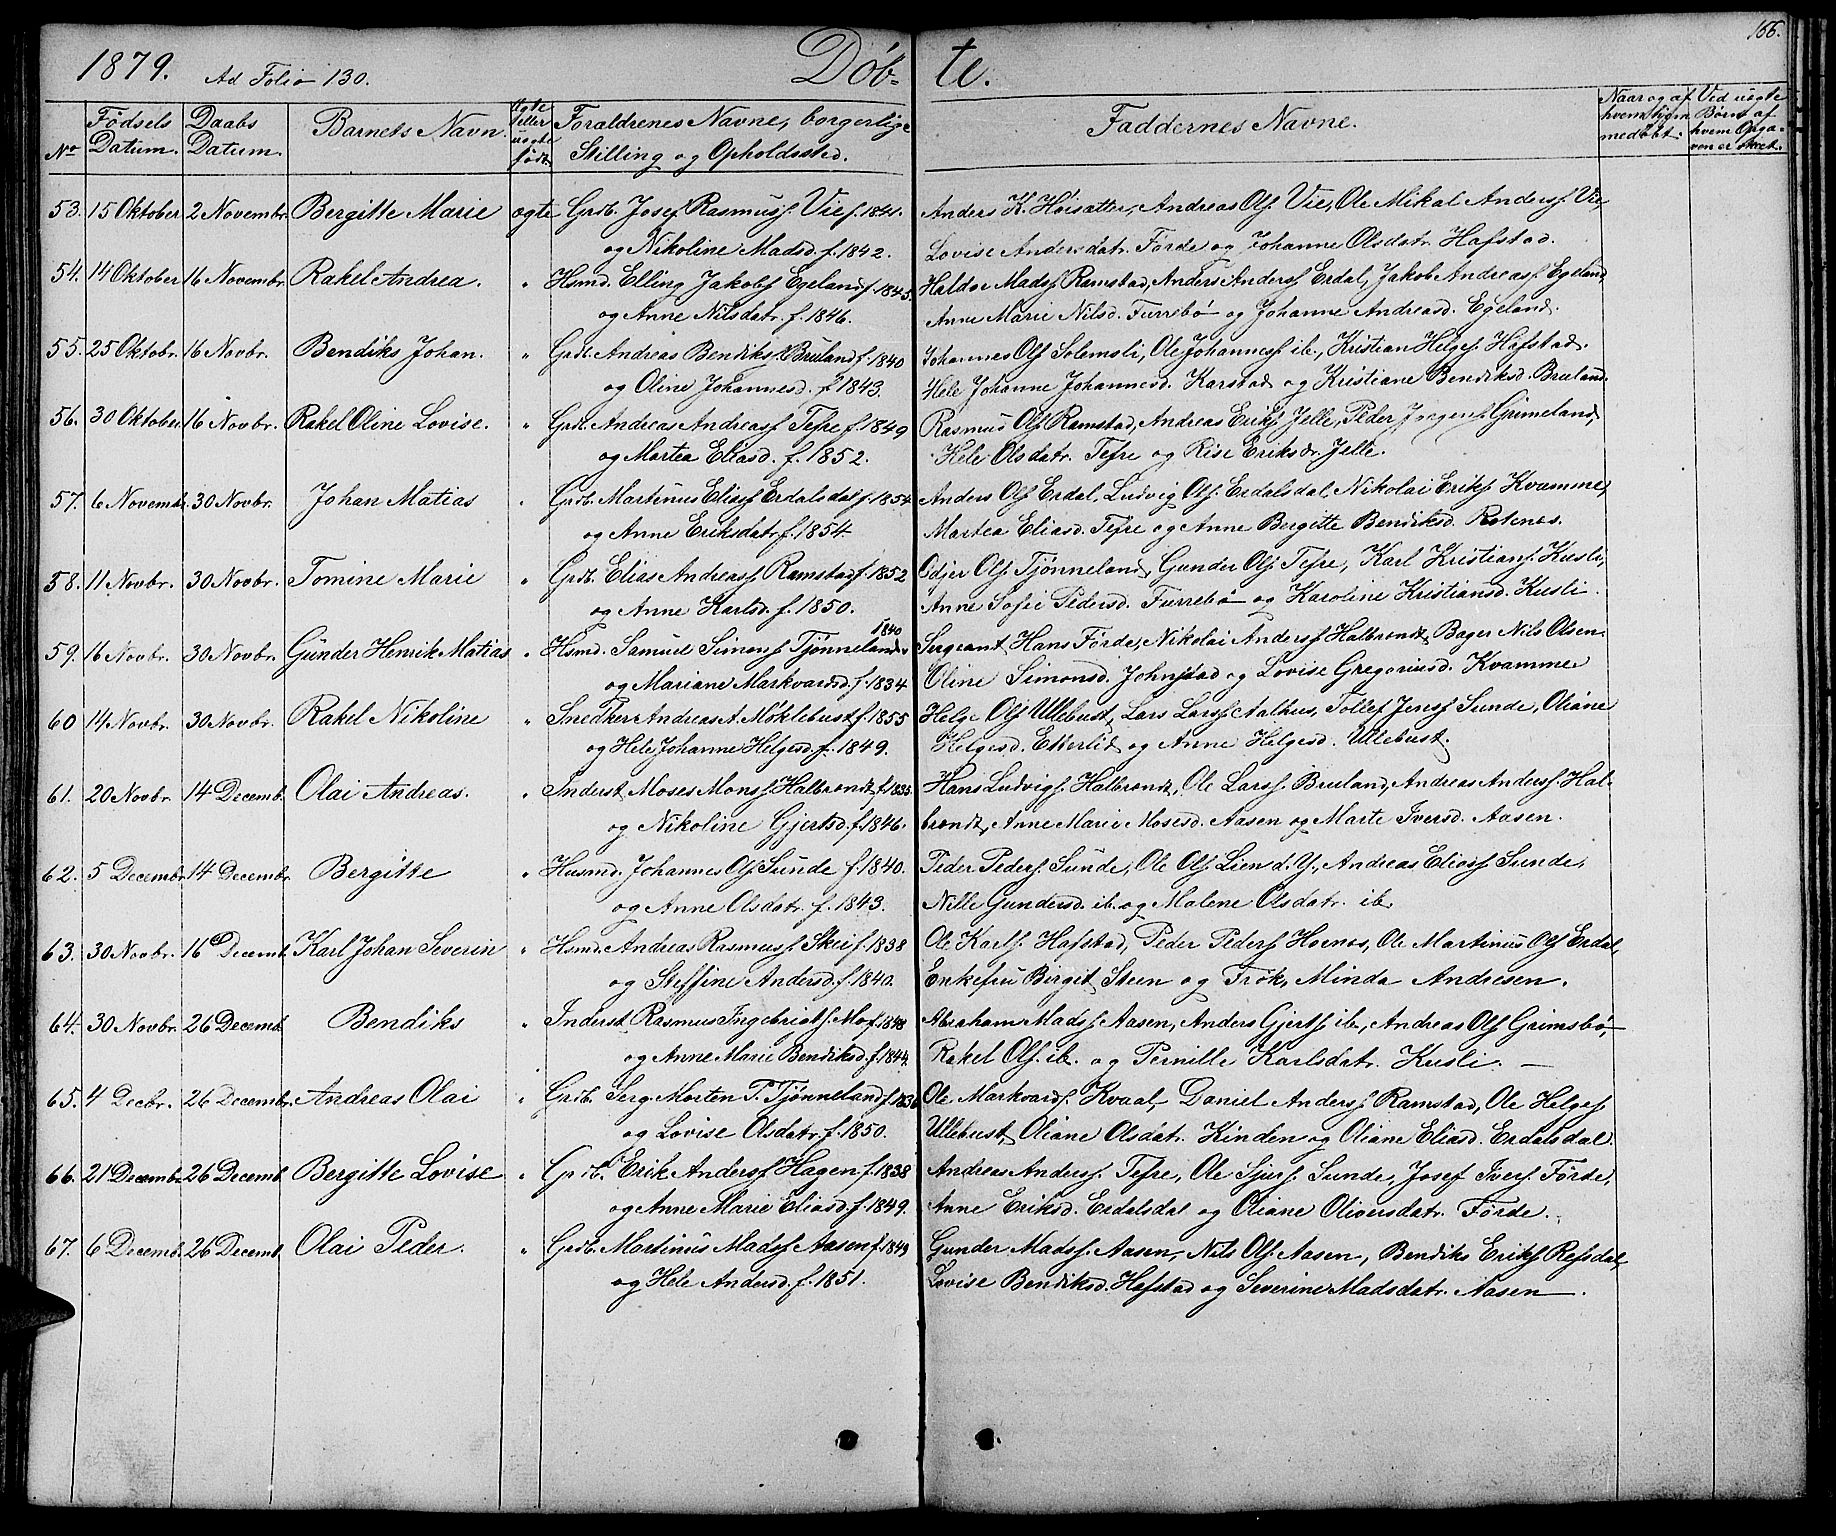 166.
1879. Ad Folio 130. Døb- te.
No Fødsels Datum. Daabs Datum. Barnets Navn. Ægte eller uægte født. Forældrenes Navne, borgerlige Stilling og Opholdssted. Faddernes Navne. Naar og af hvem hjemmedøbt. Ved uægte Børn af hvem Opgaven er skeet.
53. 15 Oktober 2 Novembr. Bergitte Marie ægte Grdb. Josef Rasmuss. Vie f. 1841. Anders K. Høisæter, Andreas Ols. Vie, Ole Mikal Anderss. Vie,
og Nikoline Madsd. f. 1842. Lovise Andersdatr. Førde og Johanne Olsdatr. Hafstad.
54. 14 Oktober 16 Novembr. Rakel Andrea. " Hsmd. Elling Jakobs. Egeland f. 1845. Haldor Madss. Ramstad, Anders Anderss. Erdal, Jakob Andreass. Egeland,
og Anne Nilsdatr. f. 1846. Anne Marie Nilsd. Furrebø og Johanne Andreasd. Egeland.
55. 25 Oktobr. 16 Novbr. Bendiks Johan. " Grdb. Andreas Bendikss. Bruland f. 1840 Johannes Ols. Solemsli, Ole Johanness. ib., Kristian Helges. Hafstad.
og Oline Johannesd. f. 1843. Hele Johanne Johannesd. Karstad og Kristiane Bendiksd. Bruland.
56. 30 Oktober. 16 Novbr. Rakel Oline Lovise. " Grdb. Andreas Andreass. Tefre f. 1849 Rasmus Ols. Ramstad, Andreas Eriks. Jelle, Peder Grimeland,
og Martea Eliasd. f. 1852. Hele Olsdatr. Tefre og Rise Eriksdr. Jelle.
57. 6 Novembr. 30 Novbr. Johan Matias " Grdb. Martinus Eliass. Erdalsdal f. 1854 Anders Ols. Erdal, Ludvig Ols. Erdalsdal, Nikolai Eriks. Kvamme,
og Anne Eriksdatr. f. 1854. Martea Eliasd. Tefre og Anne Bergitte Bendiksd. Rotenes.
58. 11 Novbr. 30 Novbr. Tomine Marie " Grdb. Elias Andreass. Ramstad f. 1852 Odjer Ols. Tjønneland, Gunder Ols. Tefre, Karl Kristians. Kusli,
og Anne Karlsd. f. 1850. Anne Sofie Pedersd. Furrebø og Karoline Kristiansd. Kusli.
59. 16 Novbr. 30 Novbr. Gunder Henrik Matias " Hsmd. Samuel Simonss. Tjønneland. 1840 Sergeant Hans Førde, Nikolai Anderss. Halbrendt, Bager Nils Olsen.
og Mariane Markvardsd. f. 1834. Oline Simonsd. Johnstad og Lovise Gregoriusd. Kvamme
60 14 Novbr. 30 Novbr. Rakel Nikoline " Snedker Andreas A. Møklebust f. 1855 Helge Ols. Ullebust, Lars Larss. Aalhus, Tollef Jenss. Sunde, Oliane
og Hele Johanne Helgesd. f. 1849. Helgesd. Etterlid og Anne Helgesd. Ullebust.
61. 20 Novbr. 14 Decemb. Olai Andreas. " Inderst Moses Monss. Halbrendt f. 1835. Hans Ludvigs. Halbrendt, Ole Larss. Bruland, Andreas Anderss. Hal-
og Nikoline Gjertsd. f. 1846. brendt, Anne Marie Mosesd. Aasen og Marte Iversd. Aasen.
62. 5 Decembr. 14 Decembr. Bergitte " Husmd. Johannes Ols. Sunde f. 1840. Peder Peders. Sunde, Ole Ols. Lien d. Y., Andreas Eliass. Sunde,
og Anne Olsdatr. f. 1843. Nille Gundersd. ib. og Malene Olsdatr. ib.
63. 30 Novbr. 16 Decemb. Karl Johan Severin " Hsmd. Andreas Rasmuss. Skei f. 1838 Ole Karls. Hafstad, Peder Peders. Hornes, Ole Martinus Ols. Erdal,
og Steffine Andersd. f. 1840. Enkefru Birgit Steen og Frøk. Minda Andresen.
64. 30 Novbr. 26 Decemb. Bendiks " Inderst Rasmus Ingebrigts. Mo f. 1848 Abraham Madss. Aasen, Anders Gjerts. ib., Andreas Ols. Grimsbø,
og Anne Marie Bendiksd. f. 1844. Rakel Ols. ib. og Pernille Karlsdatr. Kusli. —
65. 4 Decbr. 26 Decembr. Andreas Olai " Grdb. Serg. Morten P. Tjønneland f. 1836 Ole Markvards. Kvaal, Daniel Anderss. Ramstad, Ole Helges.
og Lovise Olsdatr. f. 1850. Ullebust, Oliane Olsdatr. Kinden og Oliane Eliasd. Erdalsdal.
66. 21 Decembr. 26 Decemb. Bergitte Lovise " Grdb. Erik Anderss. Hagen f. 1838 Andreas Anders. Tefre, Ole Sjurs. Sunde, Josef Ivers. Førde,
og Anne Marie Eliasd. f. 1849. Anne Eriksd. Erdalsdal og Oliane Oliversdatr. Førde.
67. 6 Decemb. 26 Decemb. Olai Peder. " Grdb. Martinus Madss. Aasen f. 1849 Gunder Madss. Aasen, Nils Ols. Aasen, Bendiks Eriks. Refsdal,
og Hele Andersd. f. 1851. Lovise Bendiksd. Hafstad og Severine Madsdatr. Aasen.